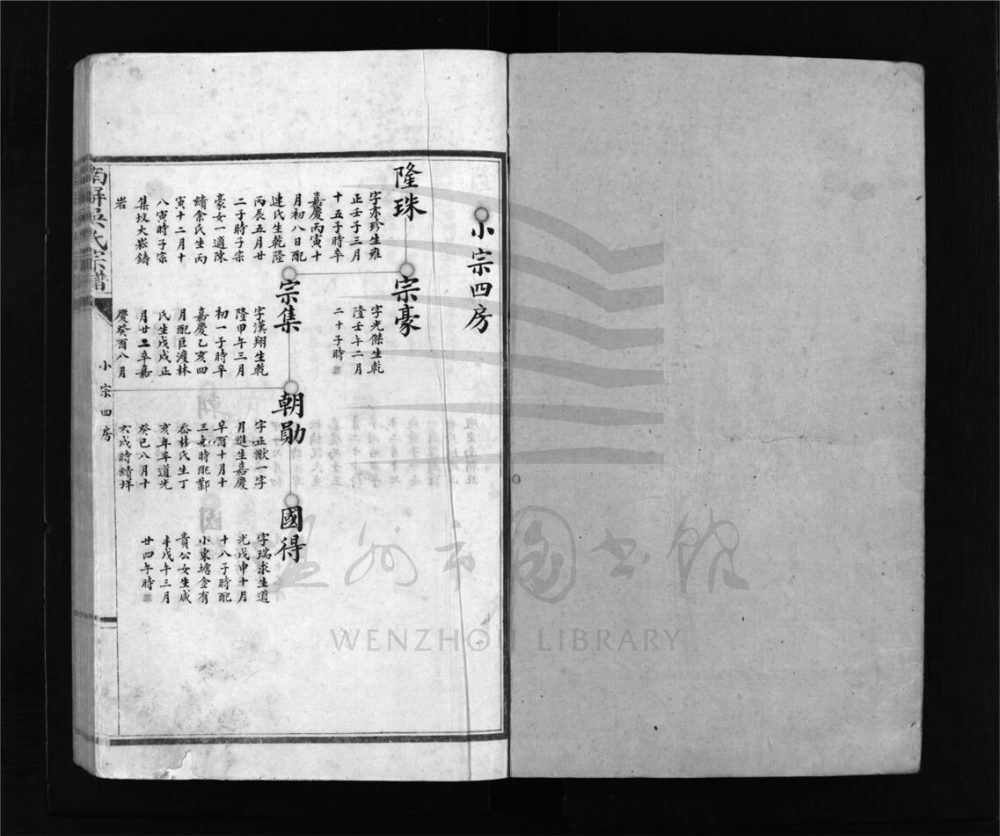 小宗四房
隆珠
字亦珍生雍
正壬子三月
十五子時卒
嘉慶丙寅十
月初八日配
連氏生乾隆
丙辰五月廿
二子時子宗
豪女一適陳
續余氏生丙
寅十二月十
八寅時子宗
集坟大嶽鑄
岩
宗豪
字光傑生乾
隆壬午二月
二十子時
宗集
字漢翔生乾
隆甲午三月
初一子時卒
嘉慶乙亥四
月配巨渡林
氏生戊戌正
月廿二卒嘉
慶癸酉八月
朝勛
字正猷一字
月進生嘉慶
辛酉十月十
三亥時配鄭
岙林氏生丁
亥年卒道光
癸巳八月十
六戌時續垟
國得
字瑞求生道
光戊申十月
十八子時配
小東垟金有
貴公女生咸
丰戊午三月
廿四午時
南屏吳氏宗譜
小宗四房
溫州市圖書館
WENZHOU LIBRARY